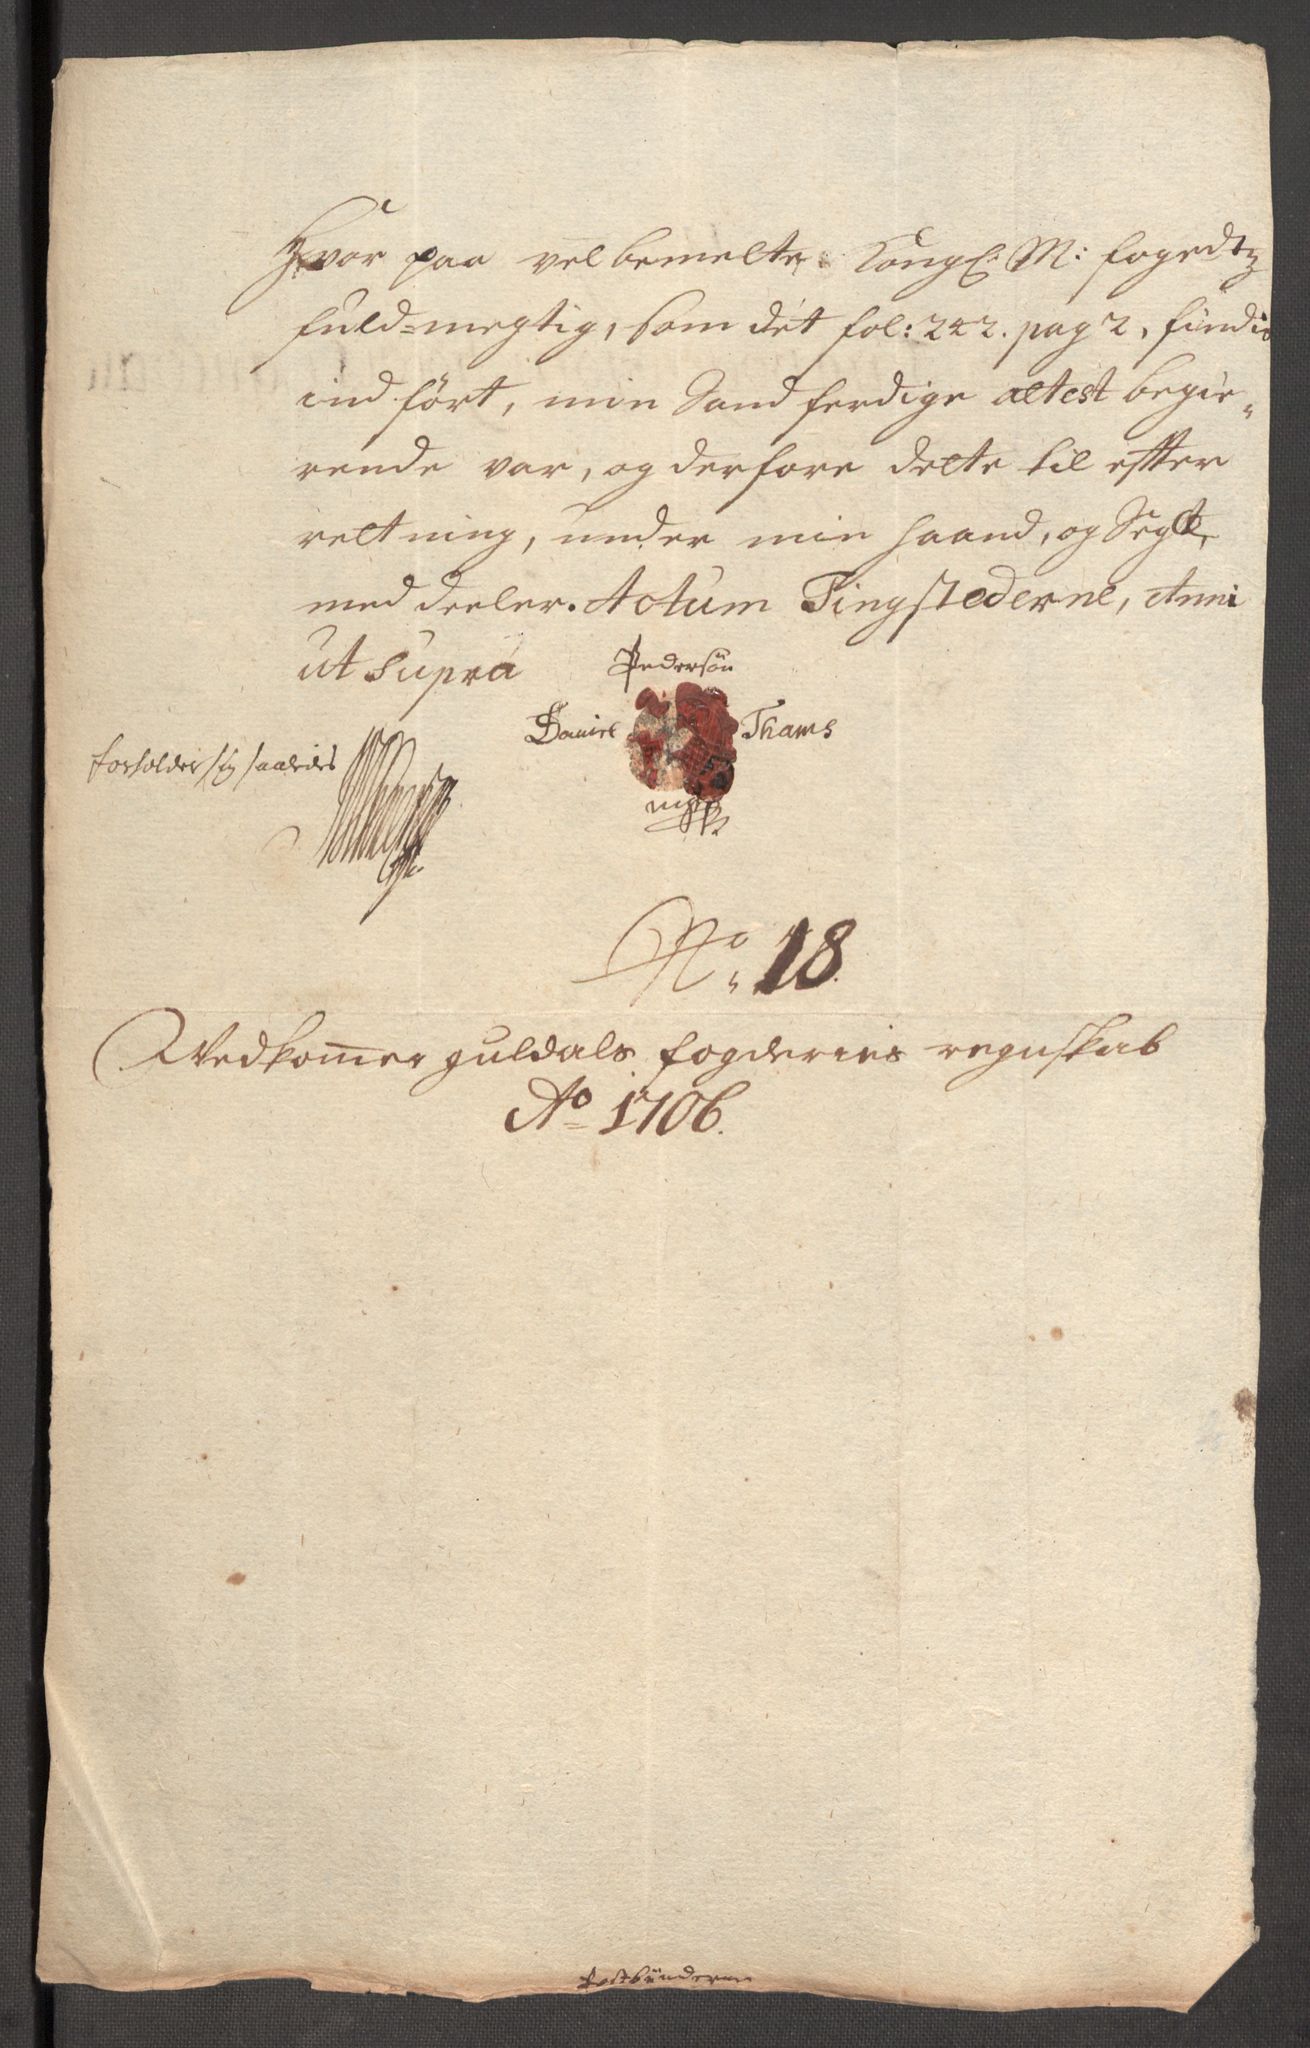 Hvor paa velbemelte Kongl: M: fogedtz
fuld=megtig, som det fol: 242. pag 2, findis
ind ført, min Sandferdige attest begie„
rende var, og derfore dette til efter
retning, under min haand, og Segl,
meddeeler. Actum Tingstederne, Anni
ut supra
Pedersøn
Daniel Thams
mpp
forholder sig saaledis
No. 18.
Vedkommer guldals fogderies regnskab
Ao 1706.
Postbønderne